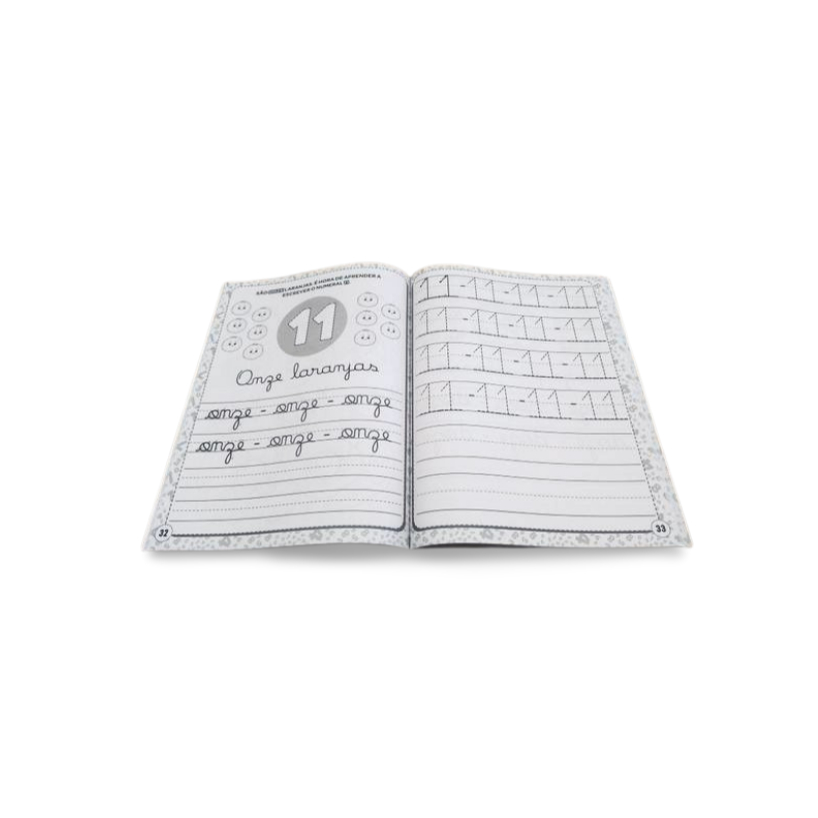 SÃO ONZE LARANJAS. É HORA DE APRENDER A
ESCREVER O NUMERAL 11
11
Onze laranjas
onze - onze - onze
onze - onze - onze
32
11 - 11 - 11 - 11
11 - 11 - 11 - 11
11 - 11 - 11 - 11
11 - 11 - 11 - 11
33